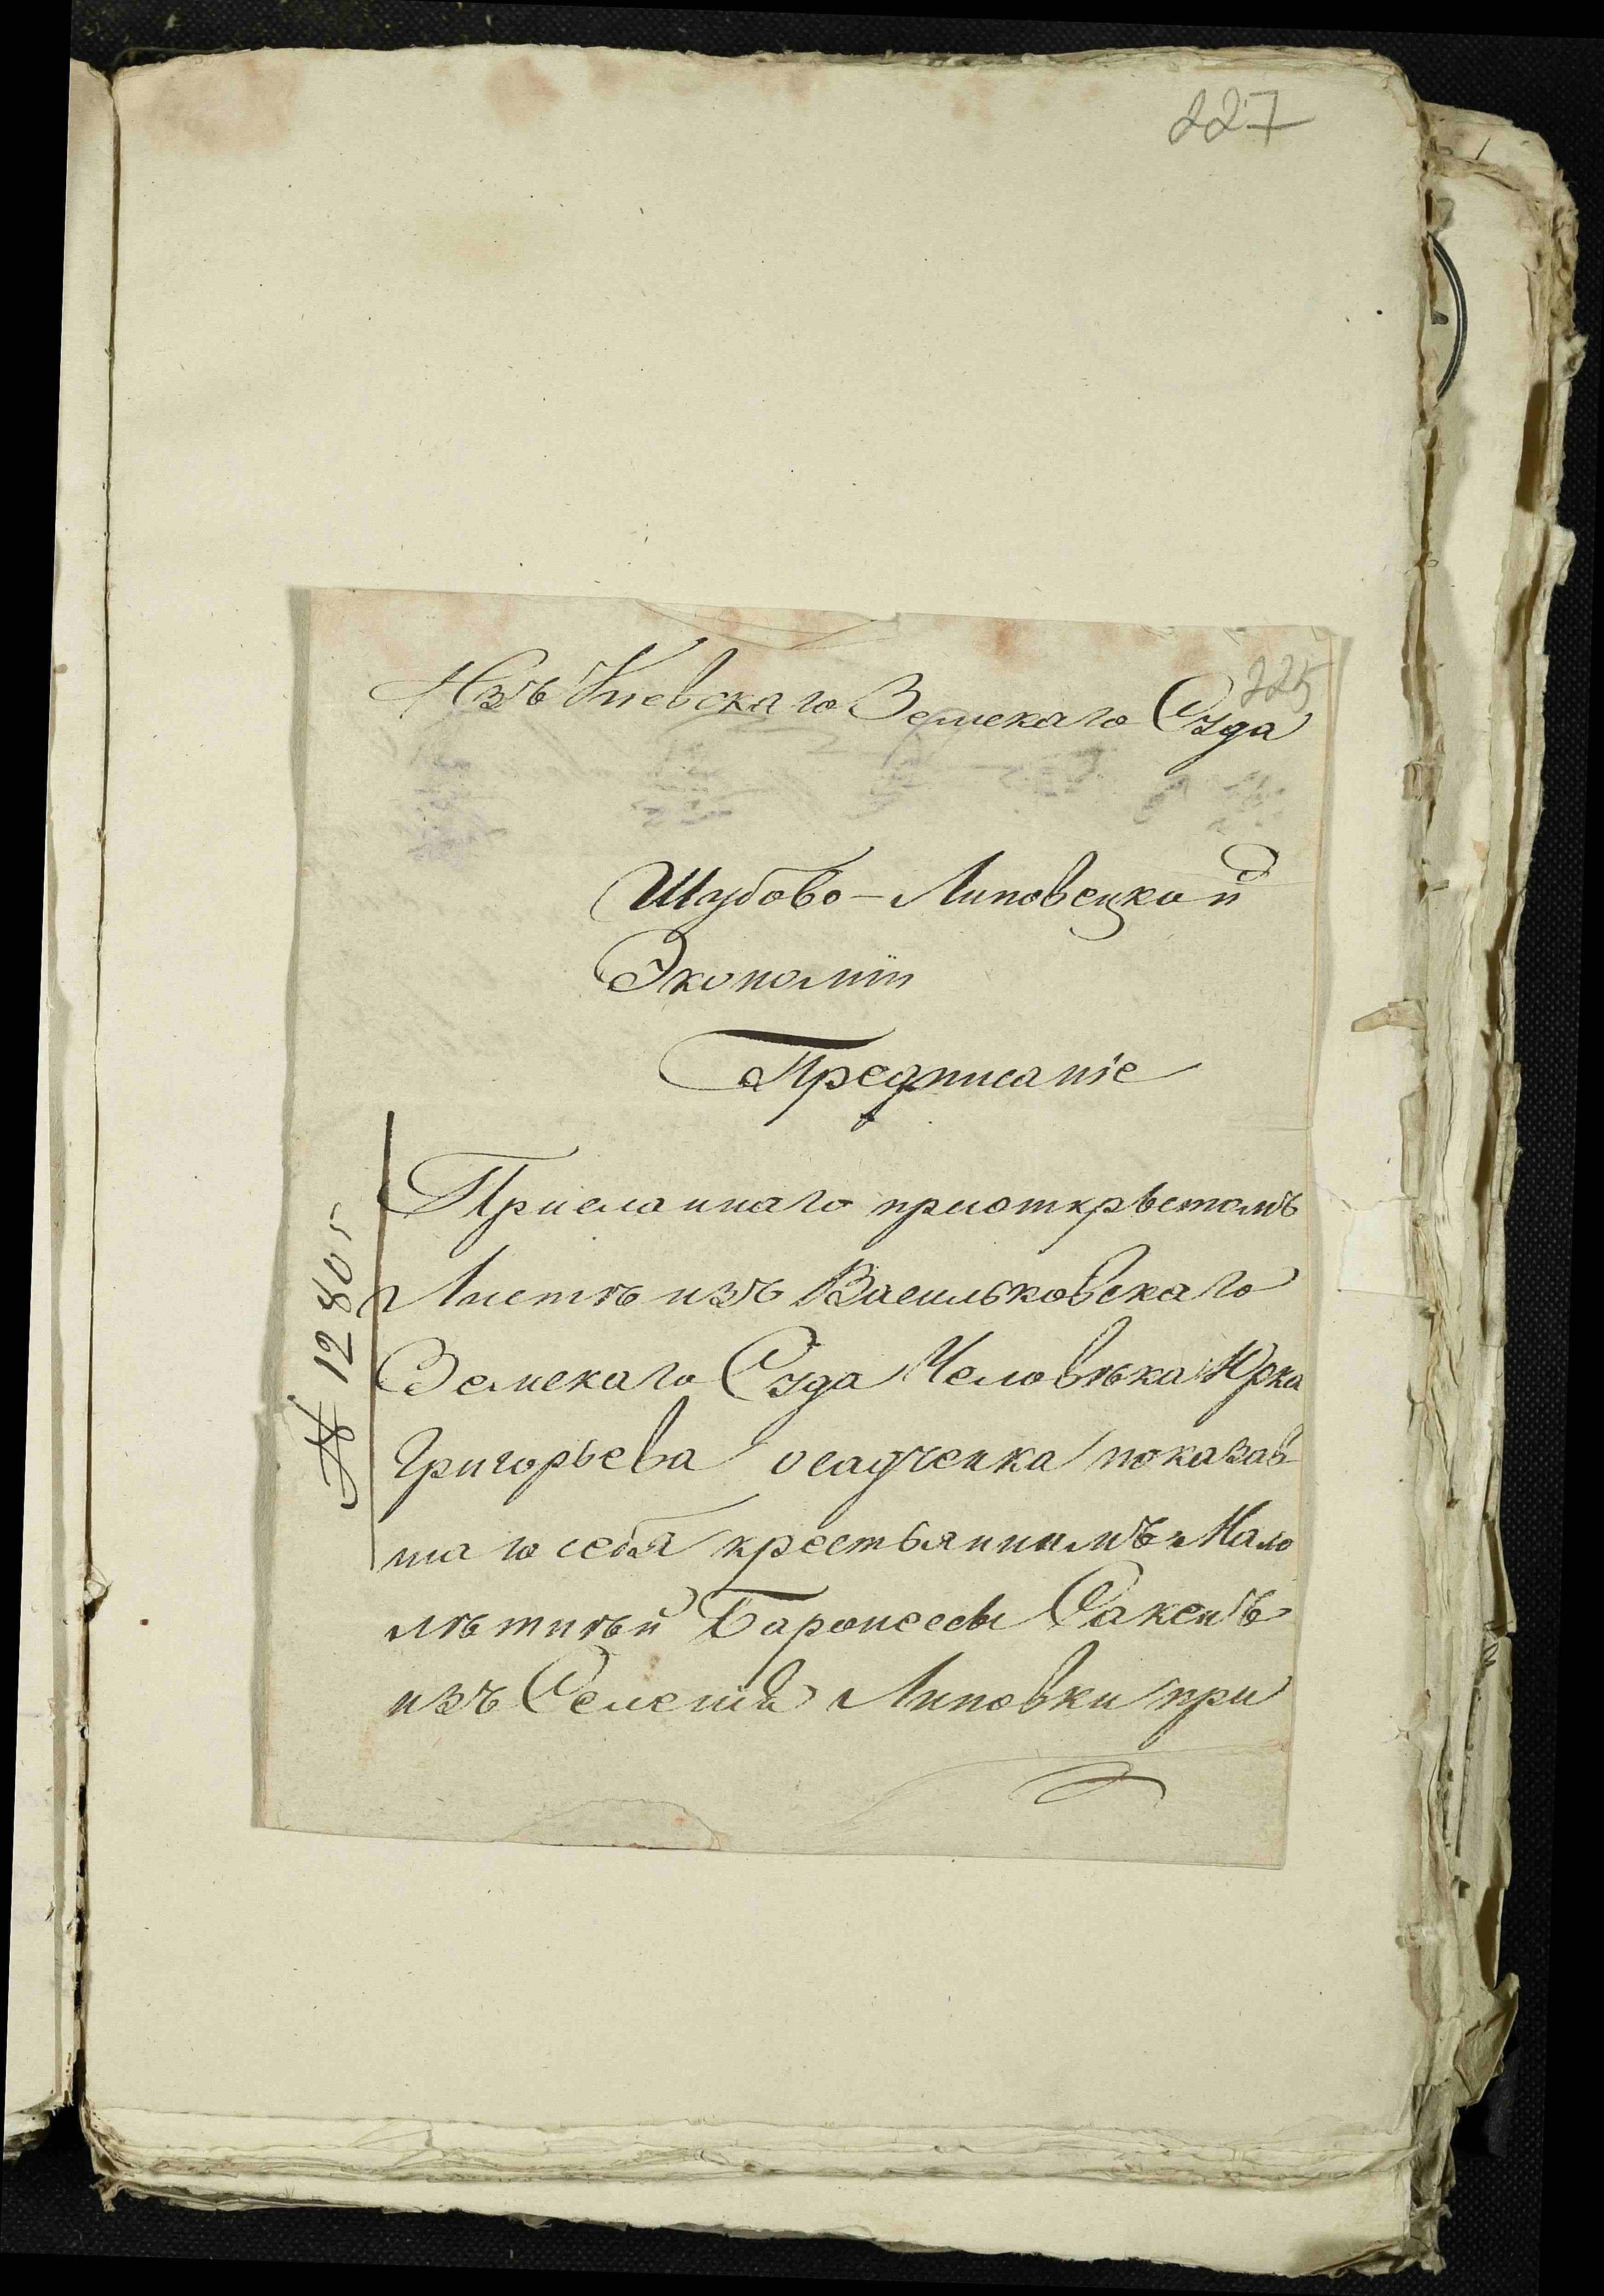 227
225
Изъ Кіевскаго Земскаго Суда
Шубово-Липовецкой
Экономіи
Предписаніе
№ 12805
Присланнаго приоткрытомъ
Листѣ изъ Васильковскаго
Земскаго Суда Человѣка Юрка
Григорьева осадченка показав
шаго себя крестьяниномъ Мало
лѣтнѣй Баронессы Сакенъ
изъ Селенія Липовки при